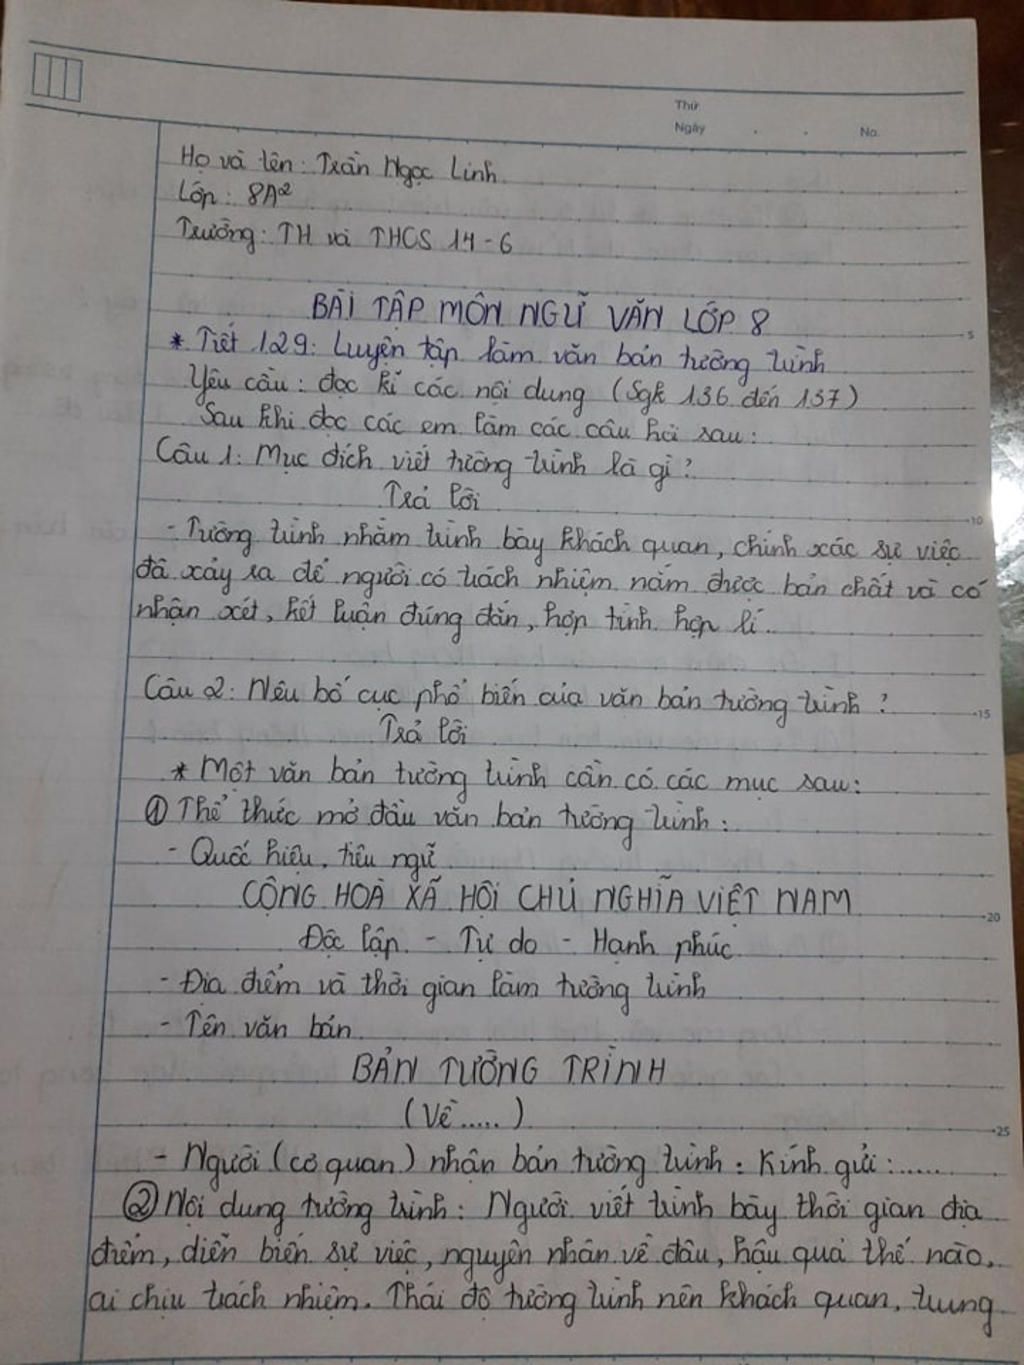 Thứ
Ngày . . No.
Họ và tên: Trần Ngọc Linh
Lớp: 8A2
Trường: TH và THCS 14-6
BÀI TẬP MÔN NGỮ VĂN LỚP 8
* Tiết 129: Luyện tập làm văn bản tường trình
Yêu cầu: đọc kĩ các nội dung (Sgk 136 đến 137)
Sau khi đọc các em làm các câu hỏi sau:
Câu 1: Mục đích viết tường trình là gì?
Trả lời
- Tường trình nhằm trình bày khách quan, chính xác sự việc
đã xảy ra để người có trách nhiệm nắm được bản chất và có
nhận xét, kết luận đúng đắn, hợp tình hợp lí.
5
10
Câu 2: Nêu bố cục phổ biến của văn bản tường trình?
15
Trả lời
* Một văn bản tường trình cần có các mục sau:
① Thể thức mở đầu văn bản tường trình:
- Quốc hiệu, tiêu ngữ
CỘNG HOÀ XÃ HỘI CHỦ NGHĨA VIỆT NAM
20
Độc lập - Tự do - Hạnh phúc
- Địa điểm và thời gian làm tường trình
- Tên văn bản
BẢN TƯỜNG TRÌNH
(Về.....)
25
- Người (cơ quan) nhận bản tường trình: Kính gửi:......
② Nội dung tường trình: Người viết trình bày thời gian địa
điểm, diễn biến sự việc, nguyên nhân về đâu, hậu quả thế nào,
ai chịu trách nhiệm. Thái độ tường trình nên khách quan, trung